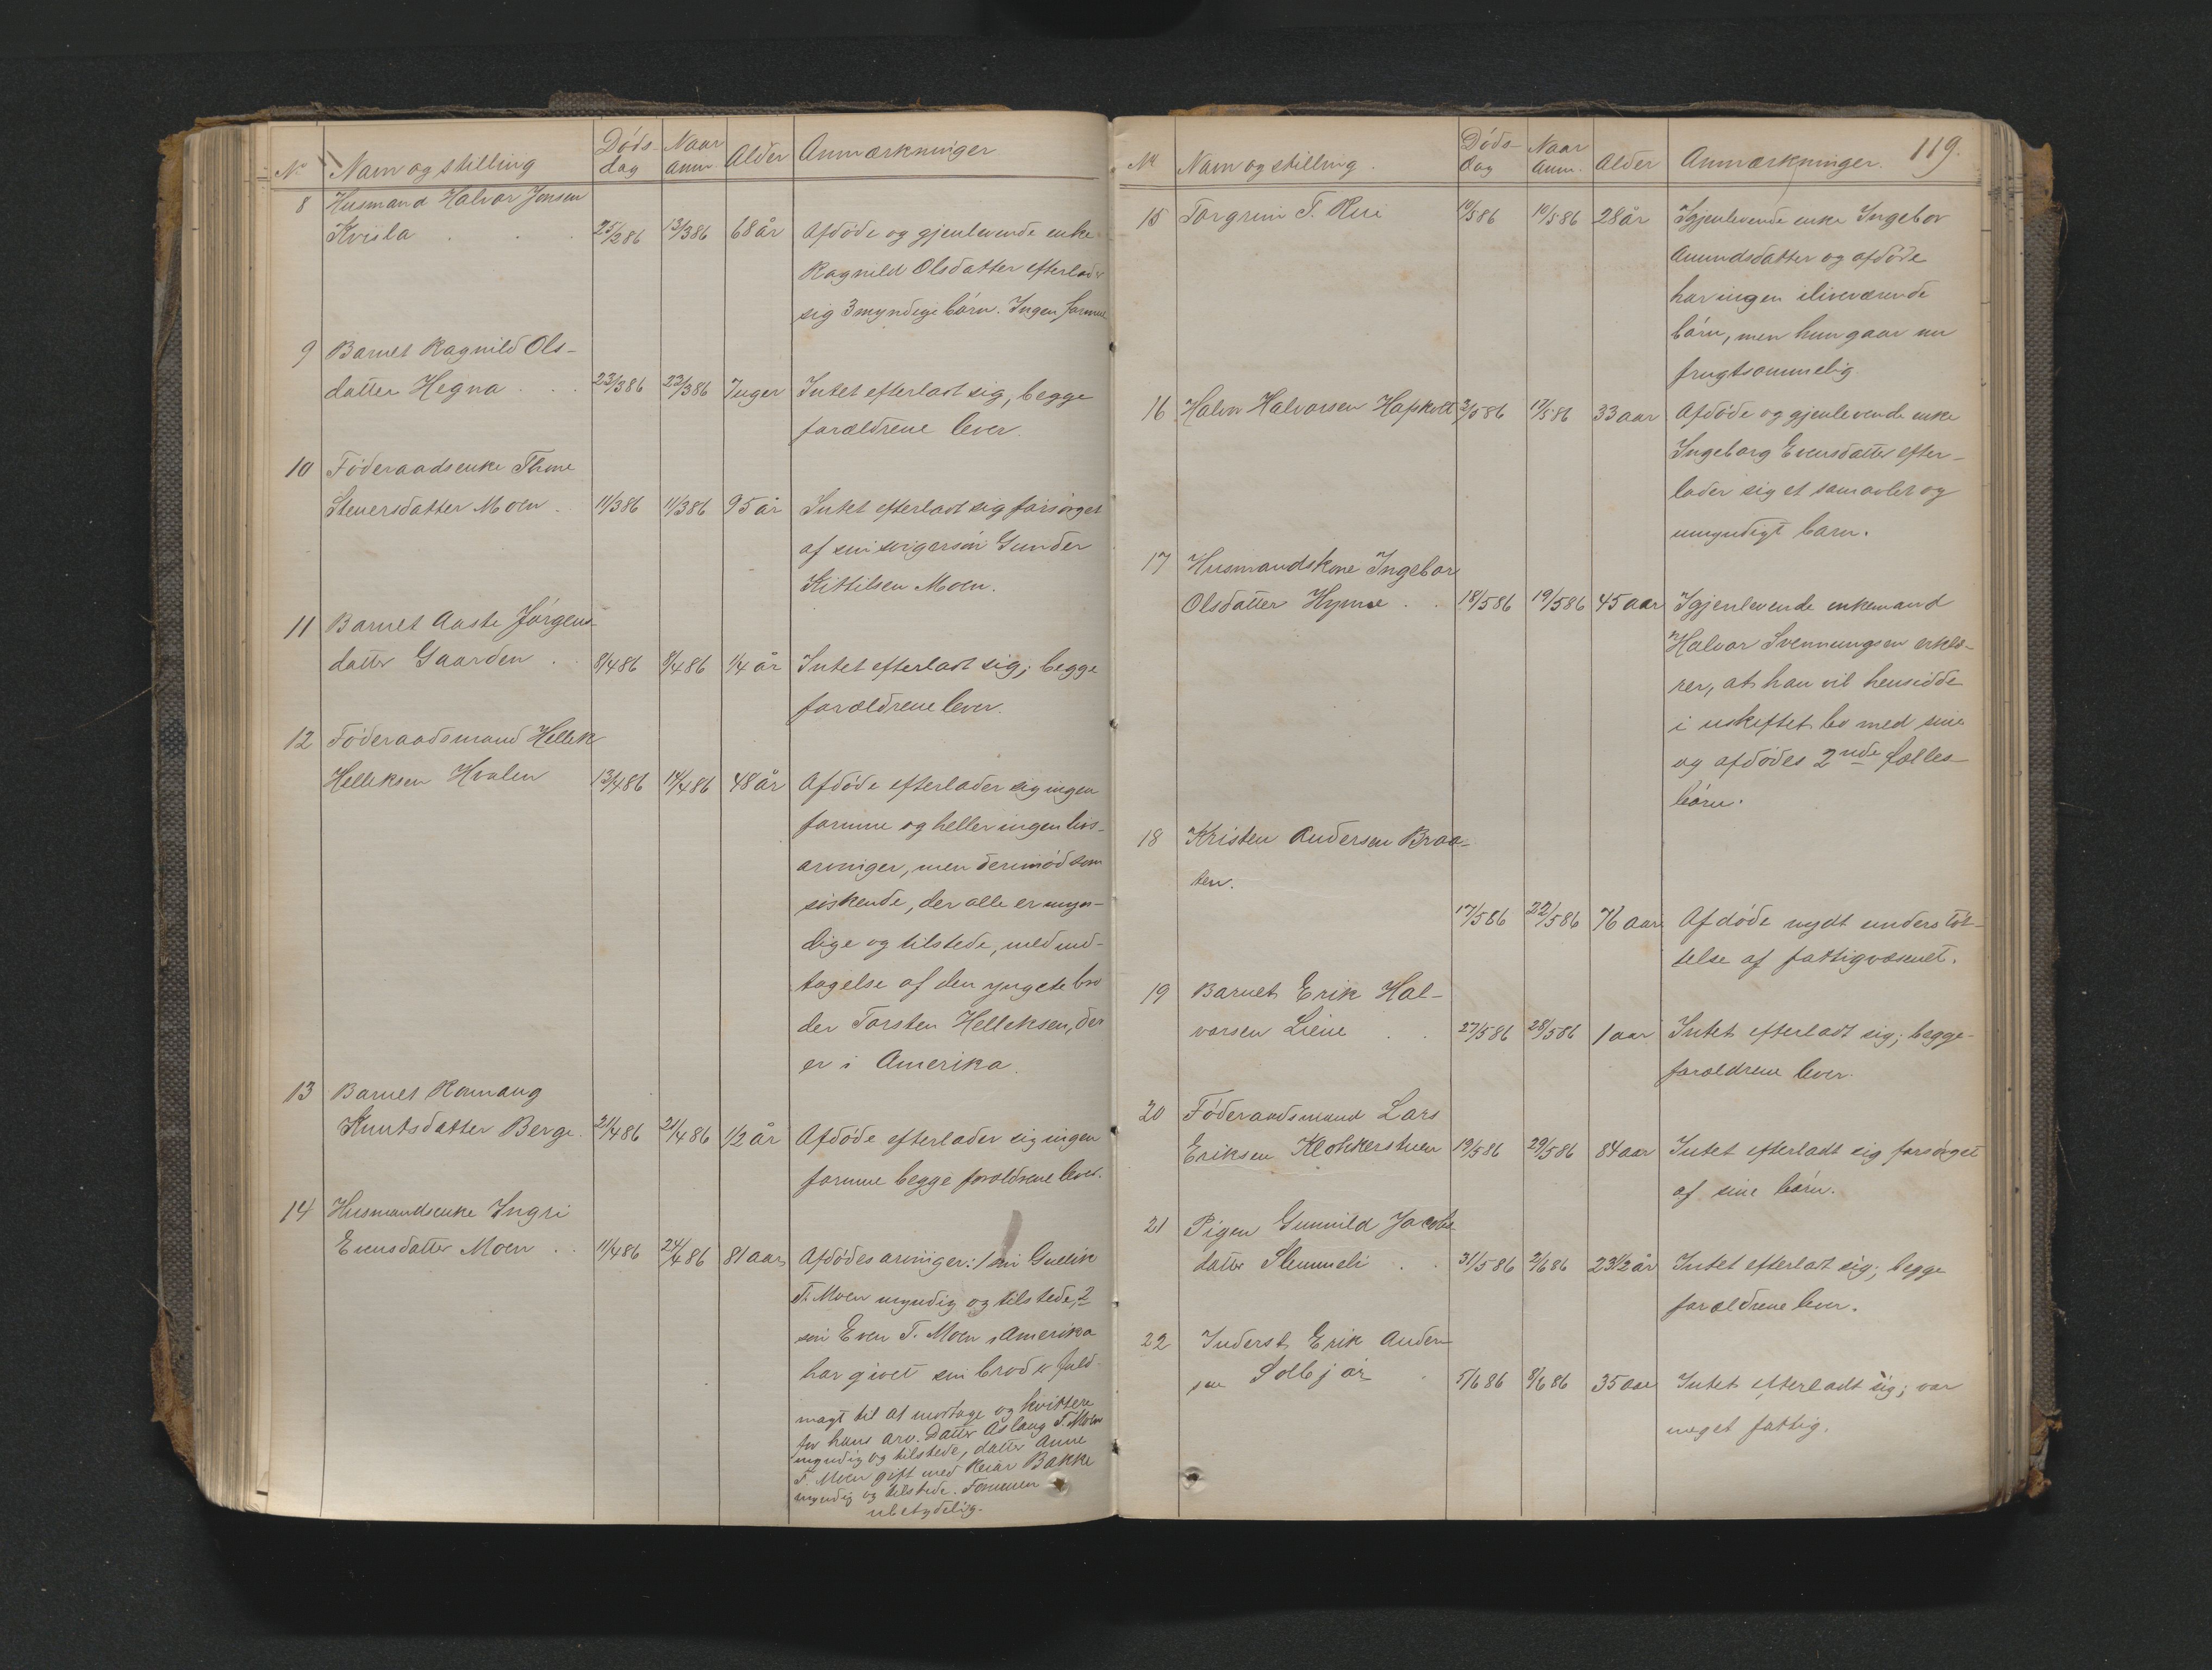 No Navn og stilling Døds- Naar Alder Anmærkninger
dag anm
8 Husmand Halvor Jonsen
Kvisla 25/286 13/386 68 år Afdøde og gjenlevende enke
Ragnild Olsdatter efterlader
sig 3 myndige børn. Ingen formue
9 Barnet Ragnild Ols-
datter Hegna 23/386 23/386 7 uger Intet efterladt sig, begge
forældrene lever.
10 Føderaadsenke Thone
Steversdatter Moen 11/386 11/386 95 år Intet efterladt sig forsørget
af sin svigersøn Gunder
Kittilsen Moen.
11 Barnet Aaste Jørgens-
datter Gaarden 8/486 8/486 1/4 år Intet efterladt sig; begge
forældrene lever.
12 Føderaadsmand Hellek
Helleksen Hvalen 13/486 14/486 48 år Afdøde efterlader sig ingen
formue og heller ingen livs-
arvinger, men derimod som
siskende, der alle er myn-
dige og tilstede, med und-
tagelse af den yngste bro
der Torsten Helleksen, der
er i Amerika.
13 Barnet Romaug
Knutsdatter Berge 21/486 21/486 1/2 år Afdøde efterlader sig ingen
formue begge forældrene lever.
14 Husmandsenke Ingri
Evensdatter Moen 11/486 24/486 81 aar Afdødes arvinger: 1 søn Gullik
T. Moen myndig og tilstede, 2
søn Even T. Moen i Amerika
har givet sin broder fuld-
magt til at mottage og kvittere
for hans arv. Datter Aslaug T. Moen
myndig og tilstede, datter Anne
T. Moen gift med Reiar Bakke
myndig og tilstede. Formuen
ubetydelig.
119.
No Navn og stilling Døds- Naar Alder Anmærkninger.
dag anm.
15 Torgrim T. Rui 10/586 10/586 28 år Igjenlevende enke Ingebor
Amundsdatter og afdøde
har ingen iliveværende
børn, men hun gaar nu
frugtsommelig.
16 Halvor Halvorsen 3/586 17/586 33 aar Afdøde og gjenlevende enke
Ingeborg Evensdatter efter-
lader sig et samavlet og
umyndigt barn.
17 Husmandskone Ingebor
Olsdatter 18/586 19/586 45 aar Igjenlevende enkemand
Halvor Svenningsen erklæ-
rer, at han vil hensidde
i uskiftet bo med sine
og afdødes 2nde fælles
børn.
18 Kristen Andersen Braa-
ten.
17/586 22/586 76 aar Afdøde nydt understøt-
telse af fattigvæsenet.
19 Barnet Erik Hal-
vorsen Liene 27/586 28/586 1 aar Intet efterladt sig; begge
forældrene lever.
20 Føderaadsmand Lars
Eriksen Klokkerstuen 19/586 29/586 84 aar Intet efterladt sig forsørget
af sine børn.
21 Pigen Gunnild Jacobs
datter Slemmeli 31/586 2/686 23 1/2 år Intet efterladt sig; begge
forældrene lever.
22 Inderst Erik Ander
sen Solbjør 5/686 8/686 35 aar Intet efterladt sig; var
meget fattig.